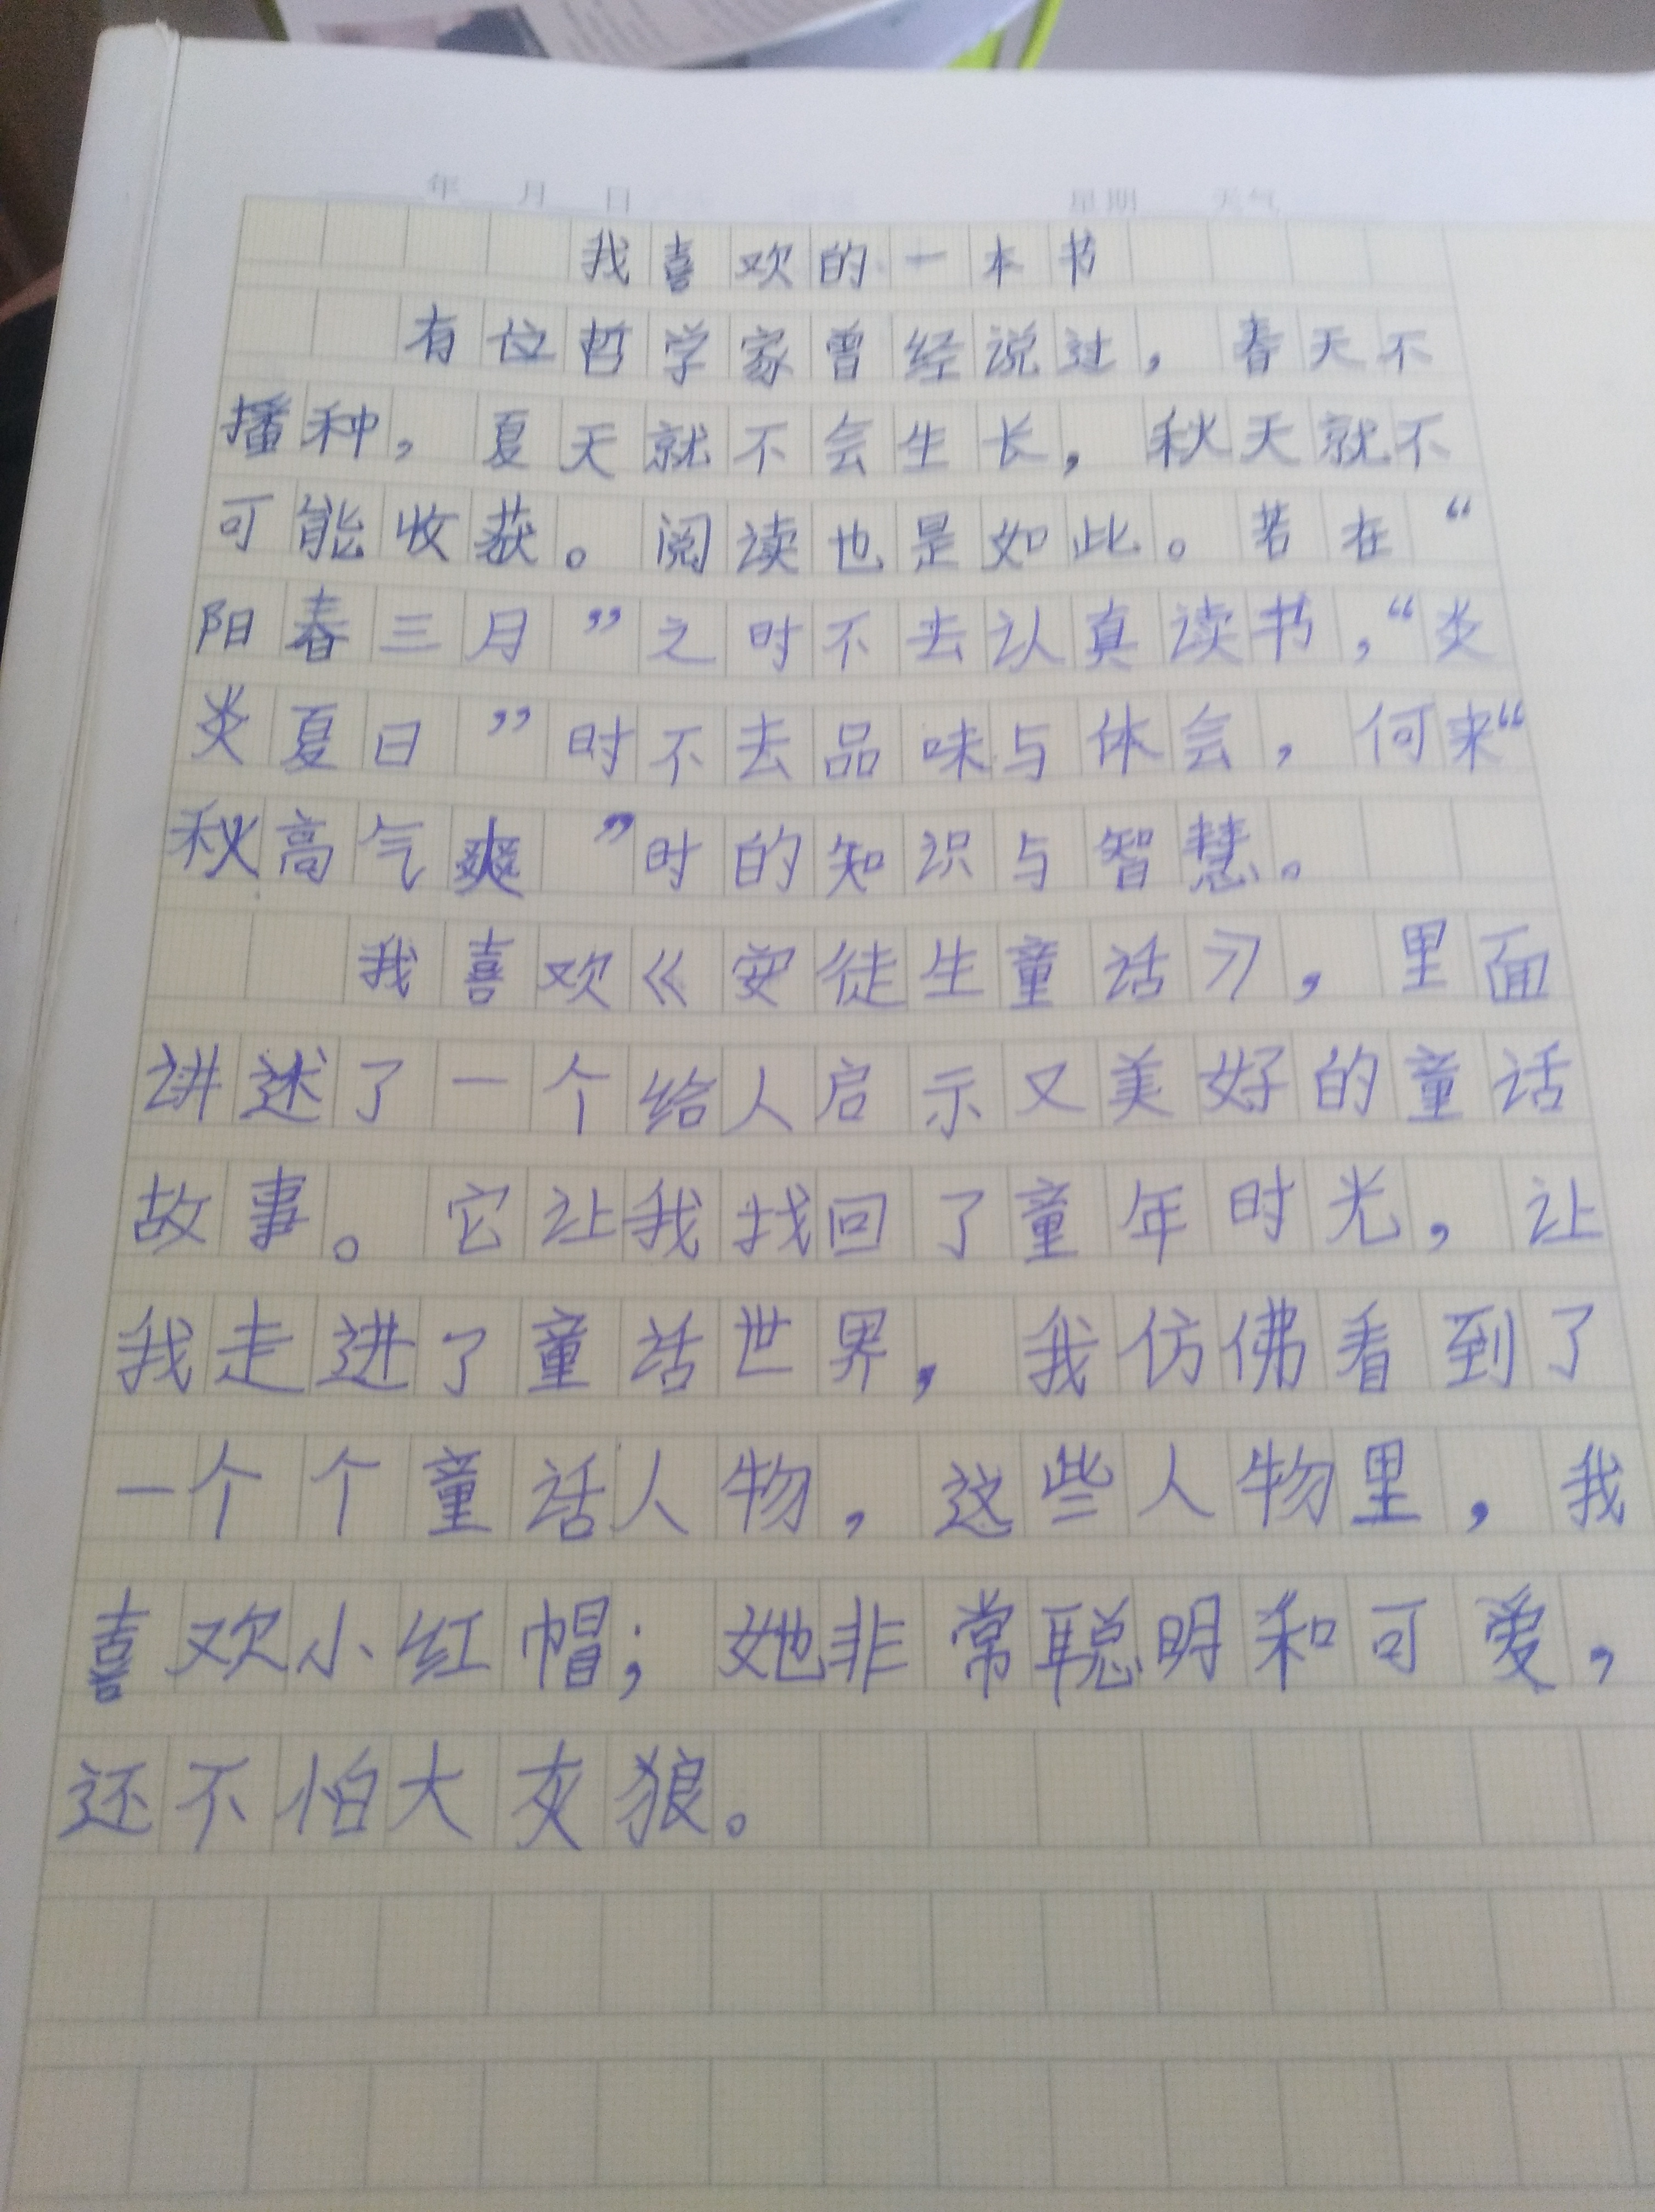 年 月 日 星期 天气
我喜欢的一本书
有位哲学家曾经说过，春天不
播种，夏天就不会生长，秋天就不
可能收获。阅读也是如此。若在“
阳春三月”之时不去认真读书，“炎
炎夏日”时不去品味与体会，何来“
秋高气爽”时的知识与智慧。
我喜欢《安徒生童话》，里面
讲述了一个给人启示又美好的童话
故事。它让我找回了童年时光，让
我走进了童话世界，我仿佛看到了
一个个童话人物，这些人物里，我
喜欢小红帽；她非常聪明和可爱，
还不怕大灰狼。